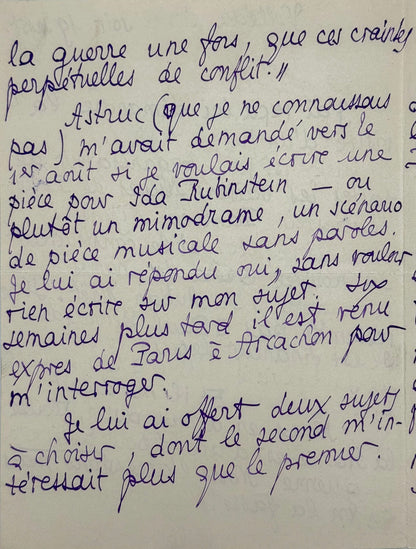 la guerre une fois, que ces craintes
perpétuelles de conflit."
Astruc (que je ne connaissais
pas) m'avait demandé vers le
1er août si je voulais écrire une
pièce pour Ida Rubinstein — ou
plutôt un mimodrame, un scénario
de pièce musicale sans paroles.
Je lui ai répondu oui, sans vouloir
rien écrire sur mon sujet. Six
semaines plus tard il est venu
exprès de Paris à Arcachon pour
m'interroger.
Je lui ai offert deux sujets
à choisir, dont le second m'in-
téressait plus que le premier.